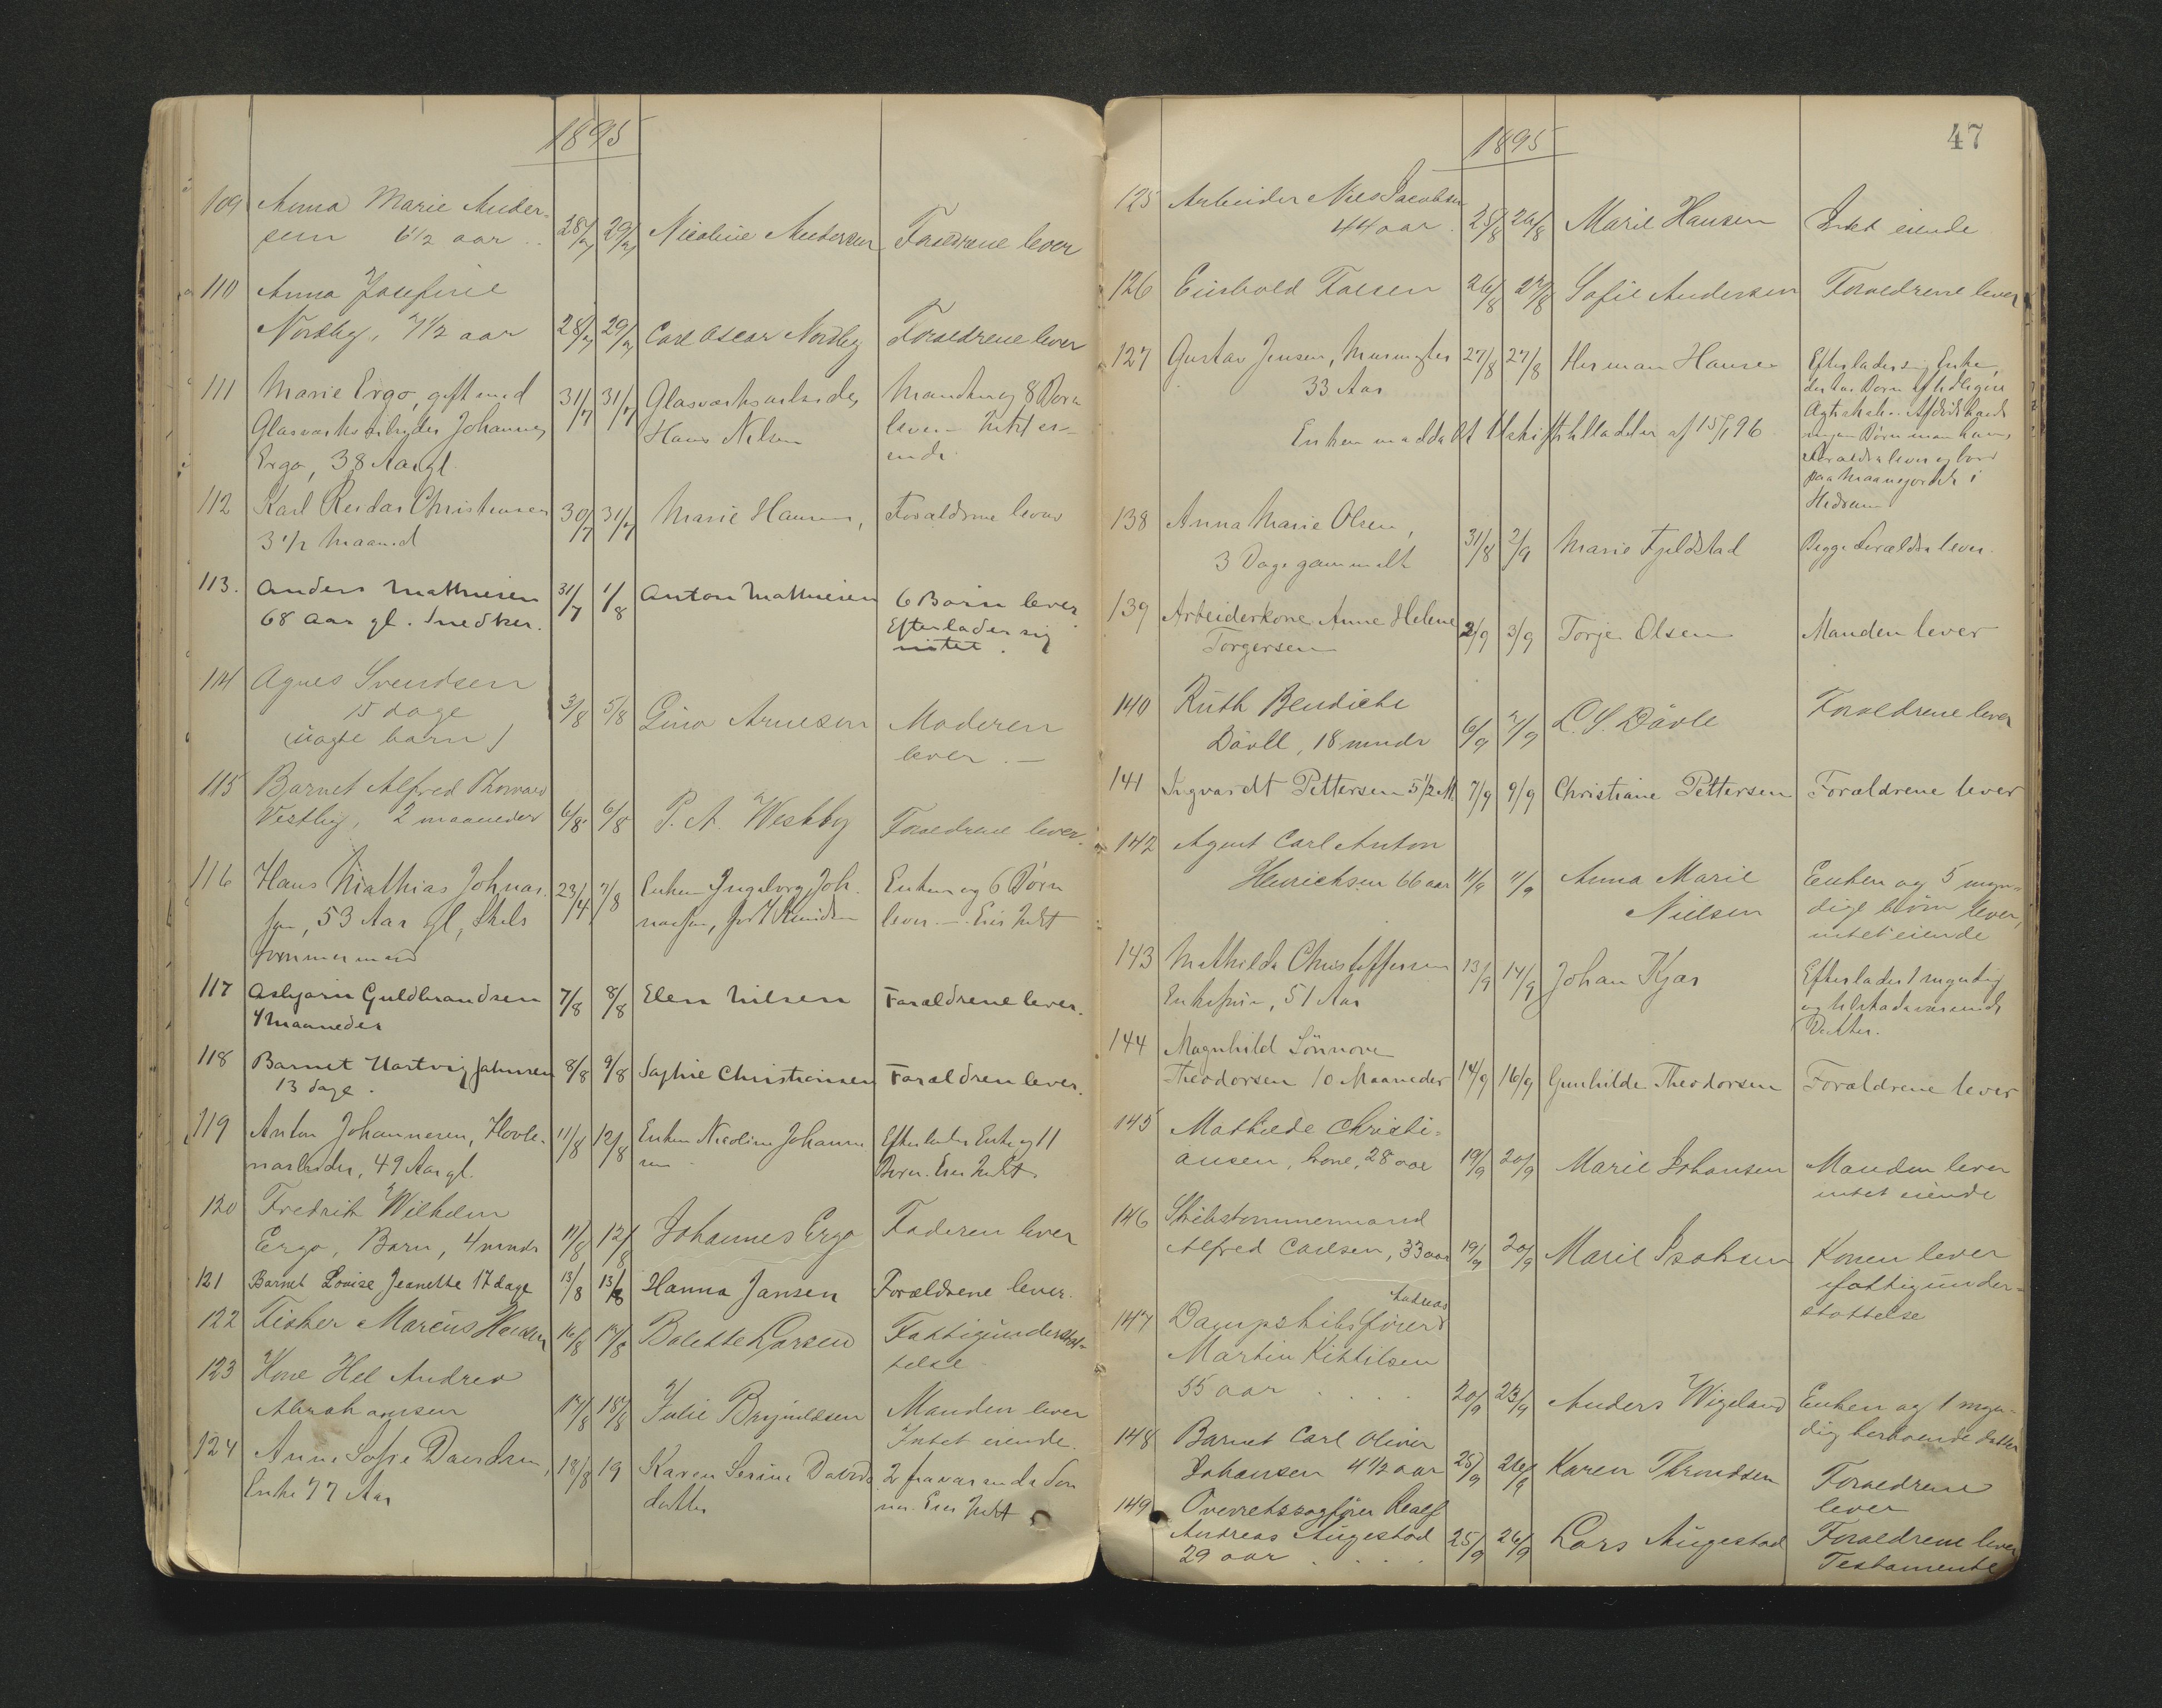 1895
109 Anna Marie Ander-
sen 6 1/2 aar 28/7 29/7 Nicoline Andersen Forældrene lever
110 Anna Josefine
Nordby, 7 1/2 aar 28/7 29/7 Carl Oscar Nordby Forældrene lever
111 Marie Ergo, gift med 31/7 31/7 Glasværksarbeider Manden og 8 Børn
Glasværksarbeider Johannes Hans Nilsen lever - Intet ei-
Ergo, 38 Aar gl. ende
112 Karl Reidar Christensen 30/7 31/7 Marie Hansen, Forældrene lever
3 1/2 Maaned
113. Anders Mathiesen 31/7 1/8 Anton Mathiesen 6 Børn lever
68 Aar gl. Snedker. Efterlader sig
intet.
114 Agnes Svendsen
15 dage 3/8 5/8 Gina Arnesen Moderen
(uægte barn) lever. -
115 Barnet Alfred Thorvald
Vestby, 2 maaneder 6/8 6/8 P. A. Westby Forældrene lever.
116 Hans Mathias Johnas. 23/4 7/8 Enken Ingeborg Joh- Enken og 6 Børn
sen, 53 Aar gl, Skibs lever. - Eier Intet
tømmermand
117 Asbjørn Guldbrandsen 7/8 8/8 Elen Nilsen Forældrene lever.
4 Maaneder
118 Barnet Hartvig Johnsen 8/8 9/8 Sophie Christiansen Forældren lever.
13 dage.
119 Anton Johannesen, Høvle- 11/8 12/8 Enken Nicoline Johanne Efterlader Enke og 11
riarbeider, 49 Aar gl. sen Børn. Eier Intet.
120 Fredrik Wilhelm
Ergo, Barn, 4 mndr 11/8 12/8 Johannes Ergo Faderen lever
121 Barnet Louise Jeanette 17 dage 13/8 13/8 Hanna Jansen Forældrene lever.
122 Fisker Marcus Hansen 16/8 17/8 Bolette Larsen Fattigunderstøt-
telse
123 Kone Hel Andrea
Abrahamsen 17/8 18/8 Julie Brynildsen Manden lever
Intet eiende.
124 Anne Sofie Davidsen, 18/8 19 Karen Serine Davids 2 fraværende Søn
Enke 77 Aar datter ner. Eier Intet
1895
47
125 Arbeider Nils Jacobsen
44 aar. 25/8 26/8 Marie Hansen Intet eiende
126 Falsen 26/8 27/8 Sofie Andersen Forældrene lever
127 Gustav Jensen, Murmester 27/8 27/8 Herman Hansen Efterlader sig Enke,
33 Aar der har Børn af tidligere
Ægteskab. Afdøde havde
Enken meddelt Uskiftetilladelse af 15/1 96
ingen Børn men hans
Forældre lever og bor
paa Maanejordet i
Hedrum
138 Anna Marie Olsen, 31/8 2/9 Marie Fjeldstad Begge Forældre lever.
3 Dage gammelt
139 Arbeiderkone Anne Helene 2/9 3/9 Torje Olsen Manden lever
Torgersen
140 Ruth Bendicte
Dåvle, 18 mndr 6/9 7/9 L. S. Dåvle Forældrene lever
141 Ingvardt Pettersen 5 1/2 M. 7/9 9/9 Christiane Pettersen Forældrene lever
142 Agent Carl Anton
Henrichsen 66 aar 11/9 11/9 Anna Marie Enken og 5 myn-
Nielsen dige børn lever,
intet eiende
143 Mathilde Christoffersen 13/9 14/9 Johan Kjær Efterlader 1 myndig
Enkefrue, 51 Aar og tilstedeværende
Datter.
144 Magnhild Sönnove
Theodorsen 10 Maaneder 14/9 16/9 Gunhilde Theodorsen Forældrene lever
145 Mathilde Christi-
ansen, kone, 28 aar 19/9 20/9 Marie Johansen Manden lever
intet eiende
146 Skibstømmermand
Alfred Carlsen, 33 aar 19/9 20/9 Marie Isaksen Konen lever
fattigunder-
støttelse
Andreas
147 Dampskibsfører
Martin Kittilsen
55 aar . . . . 20/9 23/9 Anders Wigeland Enken og 1 myn-
dig herboende datter
148 Barnet Carl Oliver
Johansen 4 1/2 aar 25/9 26/9 Karen Throndsen Forældrene
lever
149 Overretssagfører Realf
Andreas Augestad 25/9 26/9 Lars Augestad Forældrene lever
29 aar . . . . Testamente